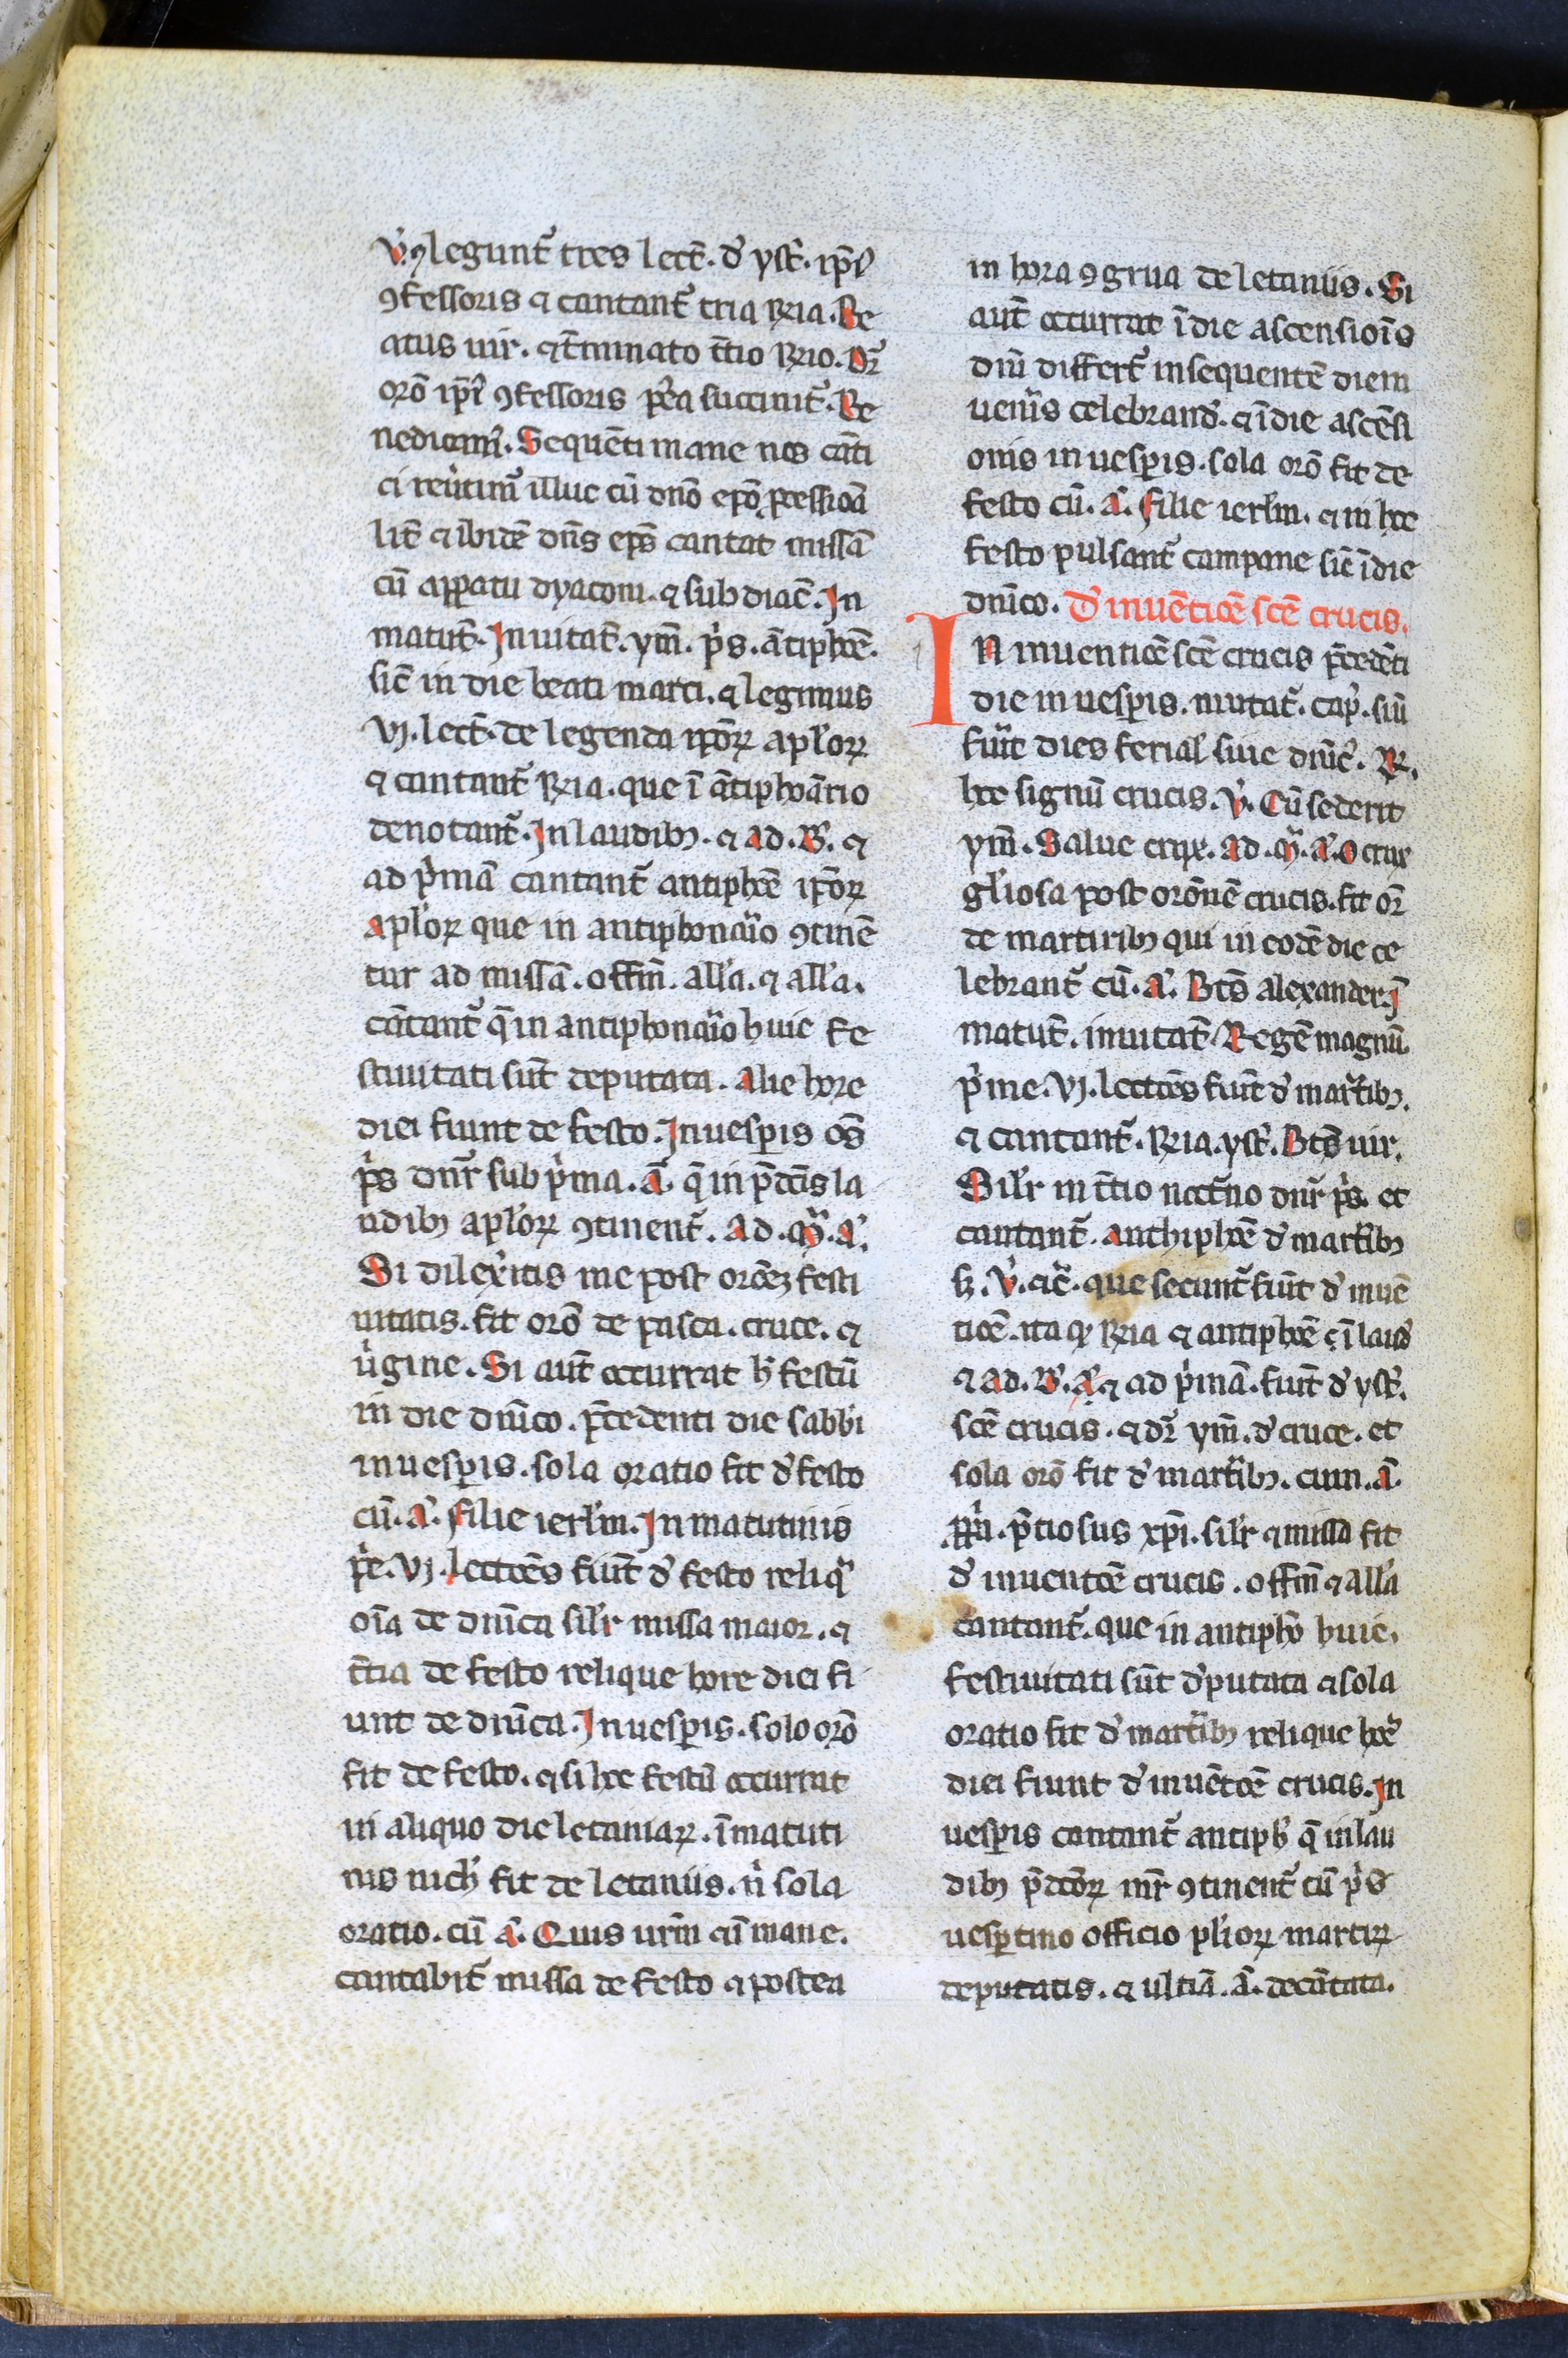 v̓. ꝯlegunt᷑ tres lect̄. d̓ yſt̓. ip̄i᷒
ꝯfessoris ⁊ cantant᷑ tria Rria. Be
atus uir. ⁊ t̄minato t̄tio Rrio. Dr̄
orō ip̄i᷒ ꝯfessoris p̄ea succinit᷑. Be
nedicam᷒. Sequēti mane nos cāti
ci reũtim᷑ illuc cū dn̄o ep̄o ꝓcessiōā
lit̄ ⁊ ibidē dn̄s ep̄s cantat missā
cū apparatu dyaconi. ⁊ subdiac̄. In
matut̄. Inuitat̄. ym̄. p̓s. ātiphōē.
sic̄ in die beati marci. ⁊ legimus
vj. lect̄. de legenda ip̄oꝝ apl̓oꝝ
⁊ cantant᷑ Rria. que ī ātiphoārio
denotant᷑. In laudibꝫ. ⁊ ad. B̓. ⁊
ad p̓mā cantant᷑ antiphōē ip̄oꝝ
apl̓oꝝ que in antiphonario ꝯtinē
tur ad missā. offm̄. all̓a. ⁊ all̓a.
cātant᷑ q̄ in antiphonario huic fe
stiuitati sūt deputata. Alie hore
diei fiunt de festo. In uesꝑis oēs
p̓s dn̄r sub p̓ma. ā. q̄ in p̄dc̄is la
udibꝫ apl̓oꝝ ꝯtinent᷑. Ad. ɱ̓. a̓.
Si dilex̓itis me post orōēꝫ festi
uitatis. fit orō de pasca. cruce. ⁊
ũgine. Si aut̄ occurrat h̓ festū
in die dn̄ico. p̄cedenti die sabb̓i
in uesꝑis. sola oratio fit d̓ festo
cū. a̓. filie ierl̓m. In matutinis
p̓e. vj. lectōēs fiūt d̓ festo reliq̓
oīa de dn̄ica sil̓r missa maior. ⁊
t̄tia de festo relique hore diei fi
unt de dn̄ica. In uesꝑis. solo orō
fit de festo. ⁊ si hoc festū occurrat
in aliquo die letaniaꝝ. ī matuti
nis nich̓ fit de letaniis. n̓ sola
oratio. cū a̓. Quis ur̄m cū mane.
cantabit᷑ missa de festo ⁊ postea
in hora ꝯgrua de letaniis. Si
aut̄ occurrat ī die ascensiōis
dn̄i differt᷑ in sequentē diem
uen̓is celebrand̓. ⁊ ī die ascēsi
onis in uesꝑis. sola orō fit de
festo cū. a̓. filie ierl̓m. ⁊ in hoc
festo pulsant᷑ campane sic̄ ī die
dn̄ico. D̓ inuētiōē scē crucis.
IN inuentiōē scē crucis p̄cedēti
die in uesꝑis. mutat᷑. cap̓. siū
fuit̄ dies ferial̓ siue dn̄ic̓. R̓.
hoc signū crucis. v̓. Cū sederit
ym̄. Salue crux. ad. ɱ̓. a̓. O crux
gl̓iosa post orōnē crucis. fit or̄
de martiribꝫ qui in eodē die ce
lebrant᷑ cū. a̓. Bt̄s alexander. j̄
matut̄. inuitat̄. Regē magnū
p̓me. vj. lectōēs fiūt d̓ mart̓ibꝫ.
⁊ cantant᷑. Rria. yſt̓. Bt̄s uir.
Sil̓r in t̄tio noct̓no dn̄r p̓s. et
cantant᷑. anthiphōē d̓ mart̓ibꝫ
sꝫ. v̓. ⁊c̄. que secunt᷑ fiūt d̓ inuē
tiōē. ita qꝫ Rria ⁊ antiphōē ī laud̓
⁊ ad. B̓. a̓. ⁊ ad p̓mā. fiūt d̓ yſt̓.
scē crucis. ⁊ dr̄ ym̄. d̓ cruce. et
sola orō fit d̓ mart̓ibꝫ. cum. a̓.
p̄tiosus xp̄i. sil̓r ⁊ missa fit
d̓ inuentōē crucis. offm̄ ⁊ all̓a
cantant᷑. que in antiphō huic.
festiuitati sūt d̓putata ⁊ sola
oratio fit d̓ mart̓ibꝫ relique hoē
diei fiunt d̓ inuētōē crucis. In
uesꝑis cantant᷑ antiph̓ q̄ in lau
dibꝫ p̄dc̄oꝝ mr̄ ꝯtinent᷑ cū p̓s
uesꝑtino officio pl̓ioꝝ martiꝝ
deputatis. ⁊ ultīā. a̓. decātata.